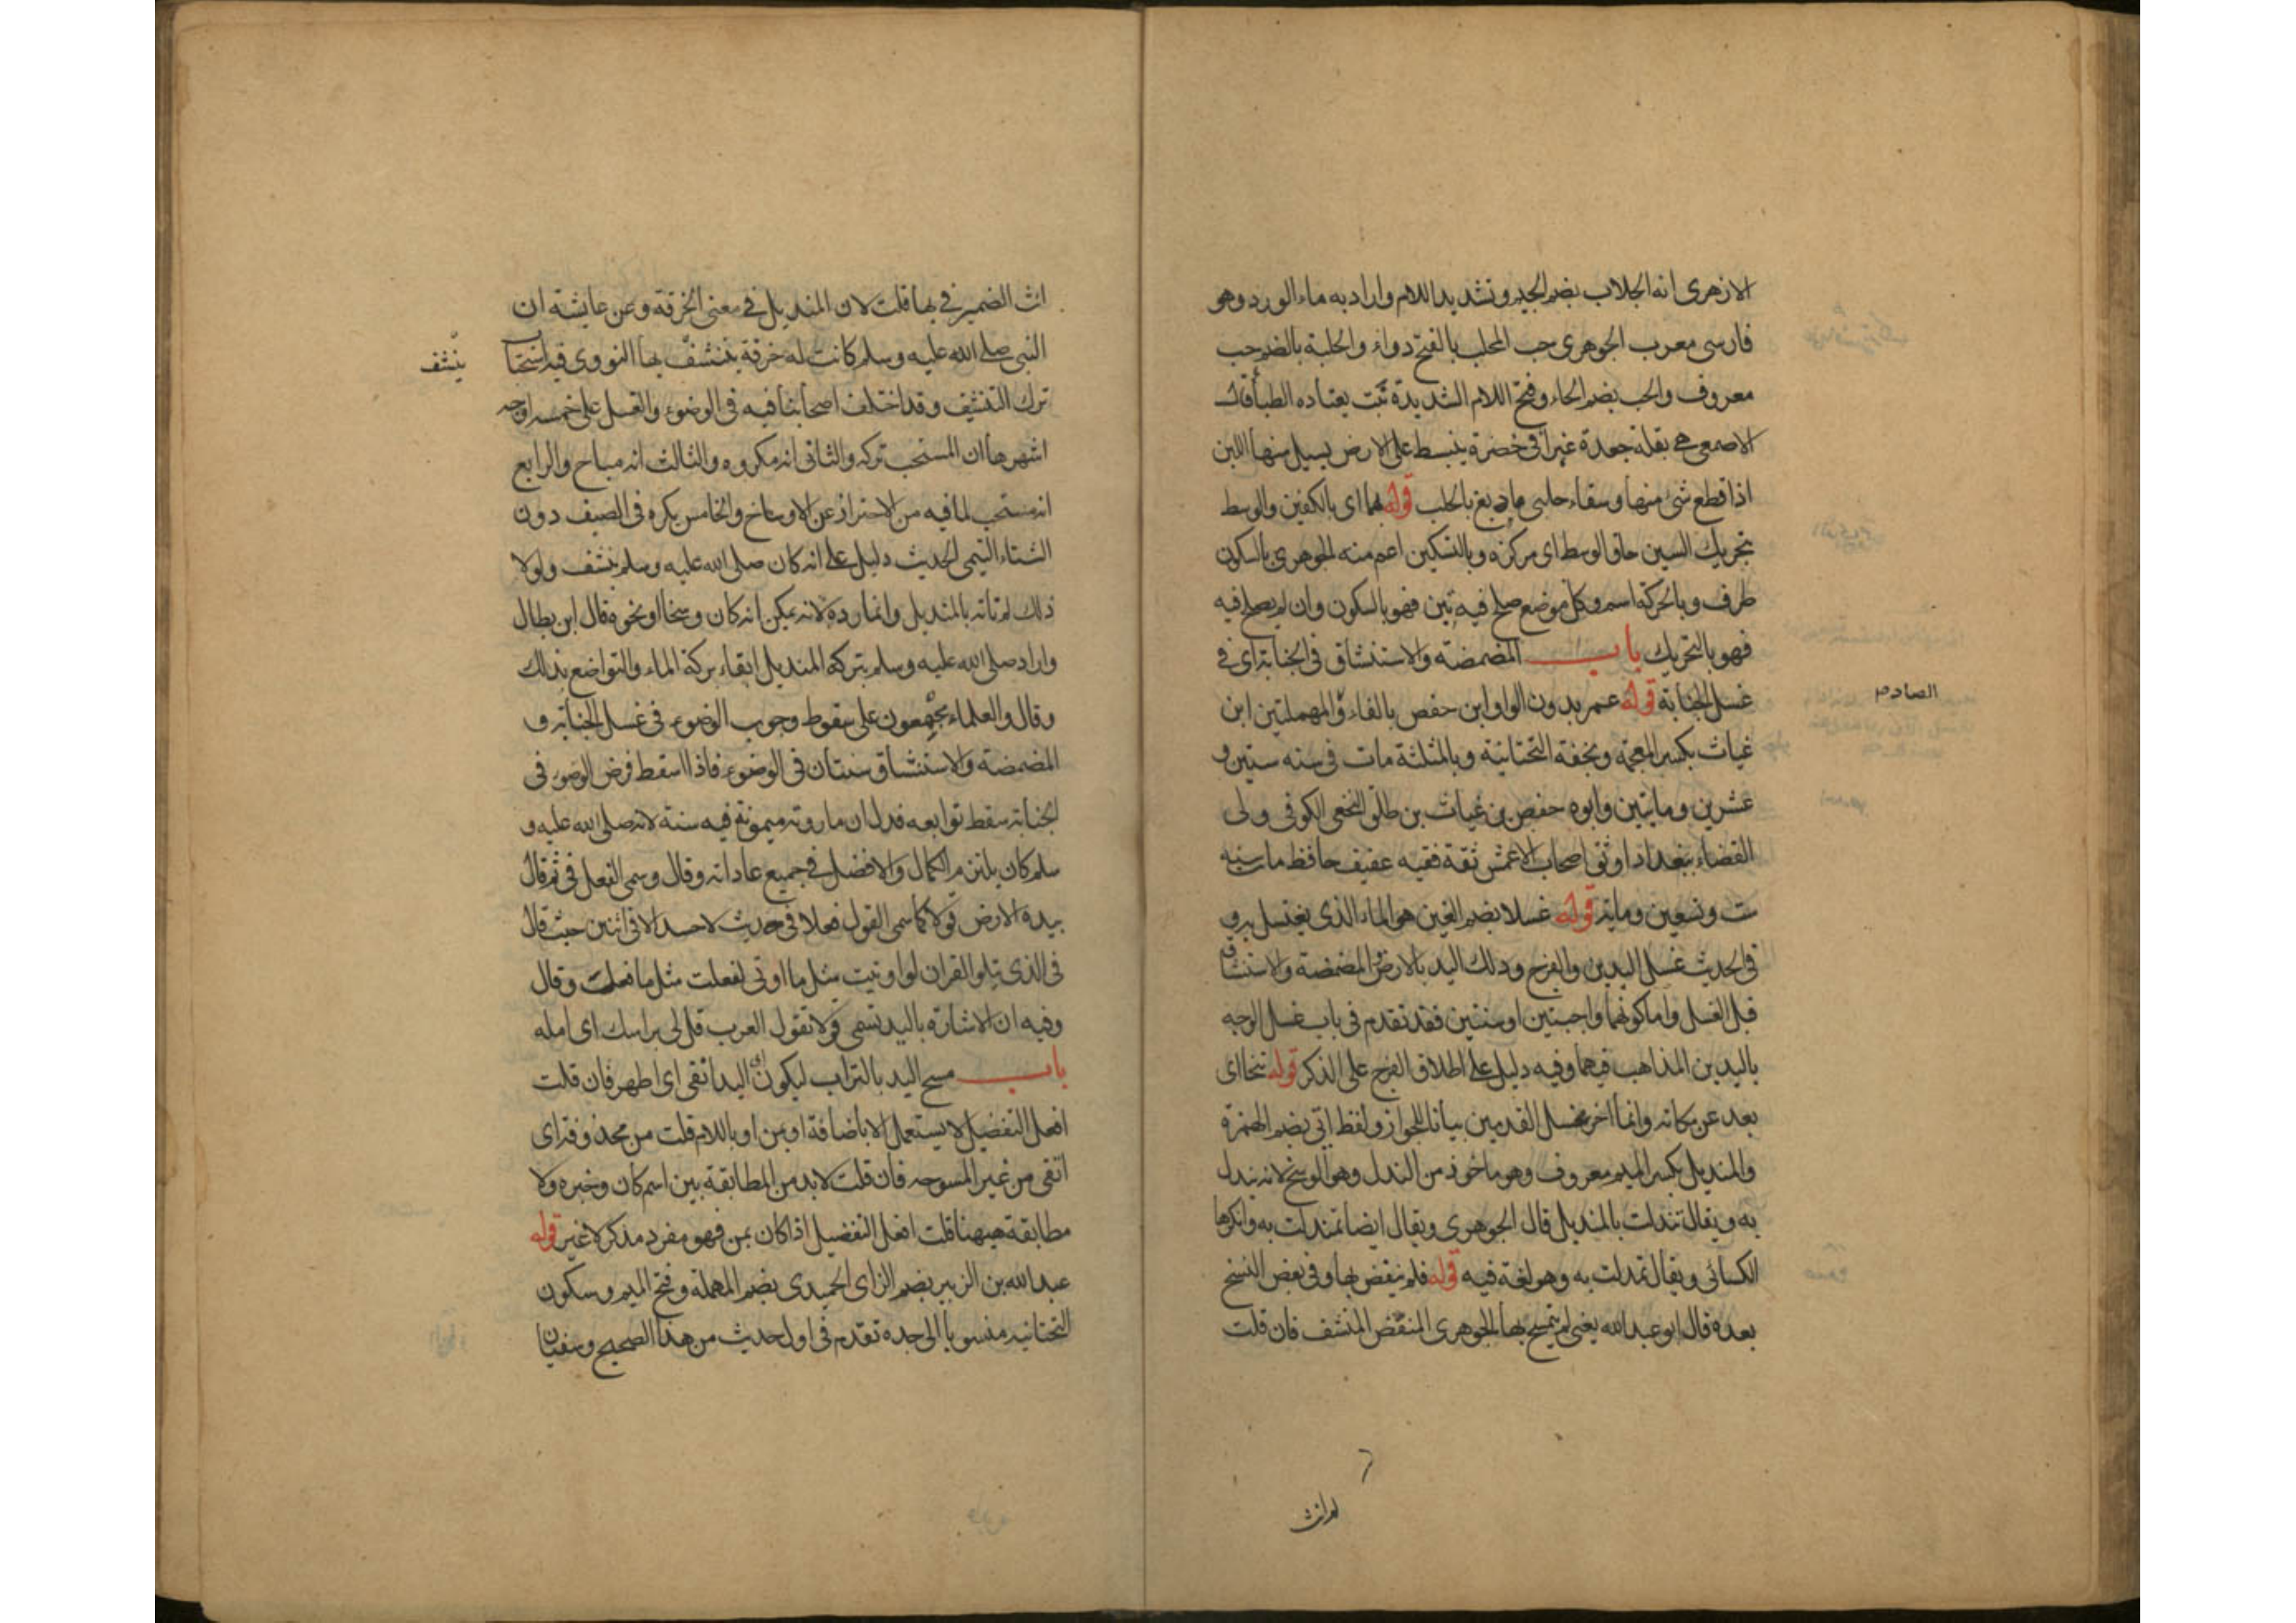 الازهرى انه الجلاب بضم الجيم وتشديد اللام واراد به ماء الورد وهو
فارسى معرب الجوهرى حب المحلب بالفتح دواء والحلبة بالضم حب
معروف والحلب بضم الحاء وفتح اللام الشديدة نبت يعتاده الظباء قال
الاصمعى هى بقلة جعدة غبرا فى خضرة ينبسط على الارض يسيل منها اللبن
اذا قطع شى منها وسقاء حلبى ما دبغ بالحلب قوله بهما اى بالكفين والوسط
بتحريك السين حاق الوسط اى مركزه وبالتسكين اعم منه الجوهرى بالسكون
ظرف وبالحركة اسم وكل موضع صلح فيه بين فهو بالسكون وان لم يصلح فيه
فهو بالتحريك باب المضمضة والاستنشاق فى الجنابة اى فى
غسل الجنابة قوله عمر بدون الواو ابن حفص بالفاء والمهملتين ابن
غياث بكسر المعجمة وبخفة التحتانية وبالمثلثة مات فى سنه ستين و
عشرين وماتين وابوه حفص بن غياث بن طلق النخعى الكوفى ولى
القضاء ببغداد اوثق اصحاب الاعمش ثقة فقيه عفيف حافظ مات سنه
ست وتسعين ومايه قوله غسلا بضم الغين هو الماء الذى يغتسل به و
فى الحديث غسل اليدين والفرج ودلك اليد بالارض والمضمضة والاستنشاق
قبل الغسل واما كونهما واجبتين او سنتين فقد تقدم فى باب غسل الوجه
باليدين المذاهب فيهما وفيه دليل على اطلاق الفرج على الذكر قوله تنحا اى
بعد عن مكانه وانما اخر غسل القدمين بيانا للجواز ولفظ اتى بضم الهمزة
والمنديل بكسر الميم معروف وهو ماخوذ من الندل وهو الوسخ لانه يندل
به ويقال تندلت بالمنديل قال الجوهرى ويقال ايضا تمندلت به وانكرها
الكسائى ويقال تمدلت به وهو لغة فيه قوله فلم ينفض بها وفى بعض النسخ
بعده قال ابو عبد الله يعنى لم يتمسح بها الجوهرى المنفض المنشف فان قلت
الصادم
لم انث
انث الضمير فى بها قلت لان المنديل فى معنى الخرقة وعن عايشة ان
النبى صلى الله عليه وسلم كانت له خرقة يتنشف بها النووى فيه استحباب
ينشف
ترك التنشيف وقد اختلف اصحابنا فيه فى الوضوء والغسل على خمسه اوجه
اشهرها ان المستحب تركه والثانى انه مكروه والثالث انه مباح والرابع
انه مستحب لما فيه من الاحتراز عن الاوساخ والخامس يكره فى الصيف دون
الشتاء التيمى الحديث دليل على انه كان صلى الله عليه وسلم ينشف ولولا
ذلك لم تاته بالمنديل وانما رده لانه يمكن انه كان وسخا او نحوه قال ابن بطال
واراد صلى الله عليه وسلم بتركه المنديل ابقاء بركة الماء والتواضع بذلك
وقال والعلماء مجمعون على سقوط وجوب الوضوء فى غسل الجنابه و
المضمضة والاستنشاق سنتان فى الوضوء فاذا اسقط فرض الوضوء فى
الجنابه سقط توابعه فدل ان ما روته ميمونة فيه سنة لانه صلى الله عليه و
سلم كان يلتزم الكمال والافضل فى جميع عاداته وقال وسمى الفعل فى ثم قال
بيده الارض قولا كما سمى القول فعلا فى حديث لا حسد الا فى اثنين حيث قال
فى الذى يتلو القران لو اوتيت مثل ما اوتى لفعلت مثل ما فعلت وقال
وفيه ان الاشارة باليد تسمى قولا تقول العرب قل لى براسك اى امله
باب مسح اليد بالتراب ليكون اليد انقى اى اطهر فان قلت
افعل التفضيل لا يستعمل الا باضافة او بمن او باللام قلت من محذوفة اى
انقى من غير الممسوحه فان قلت لا بد من المطابقة بين اسم كان وخبره ولا
مطابقة هيهنا قلت افعل التفضيل اذا كان بمن فهو مفرد مذكر لا غير قوله
عبد الله بن الزبير بضم الزاى الحميدى بضم المهملة وفتح الميم وسكون
التحتانيه منسوبا الى جده تقدم فى اول حديث من هذا الصحيح وسفيان